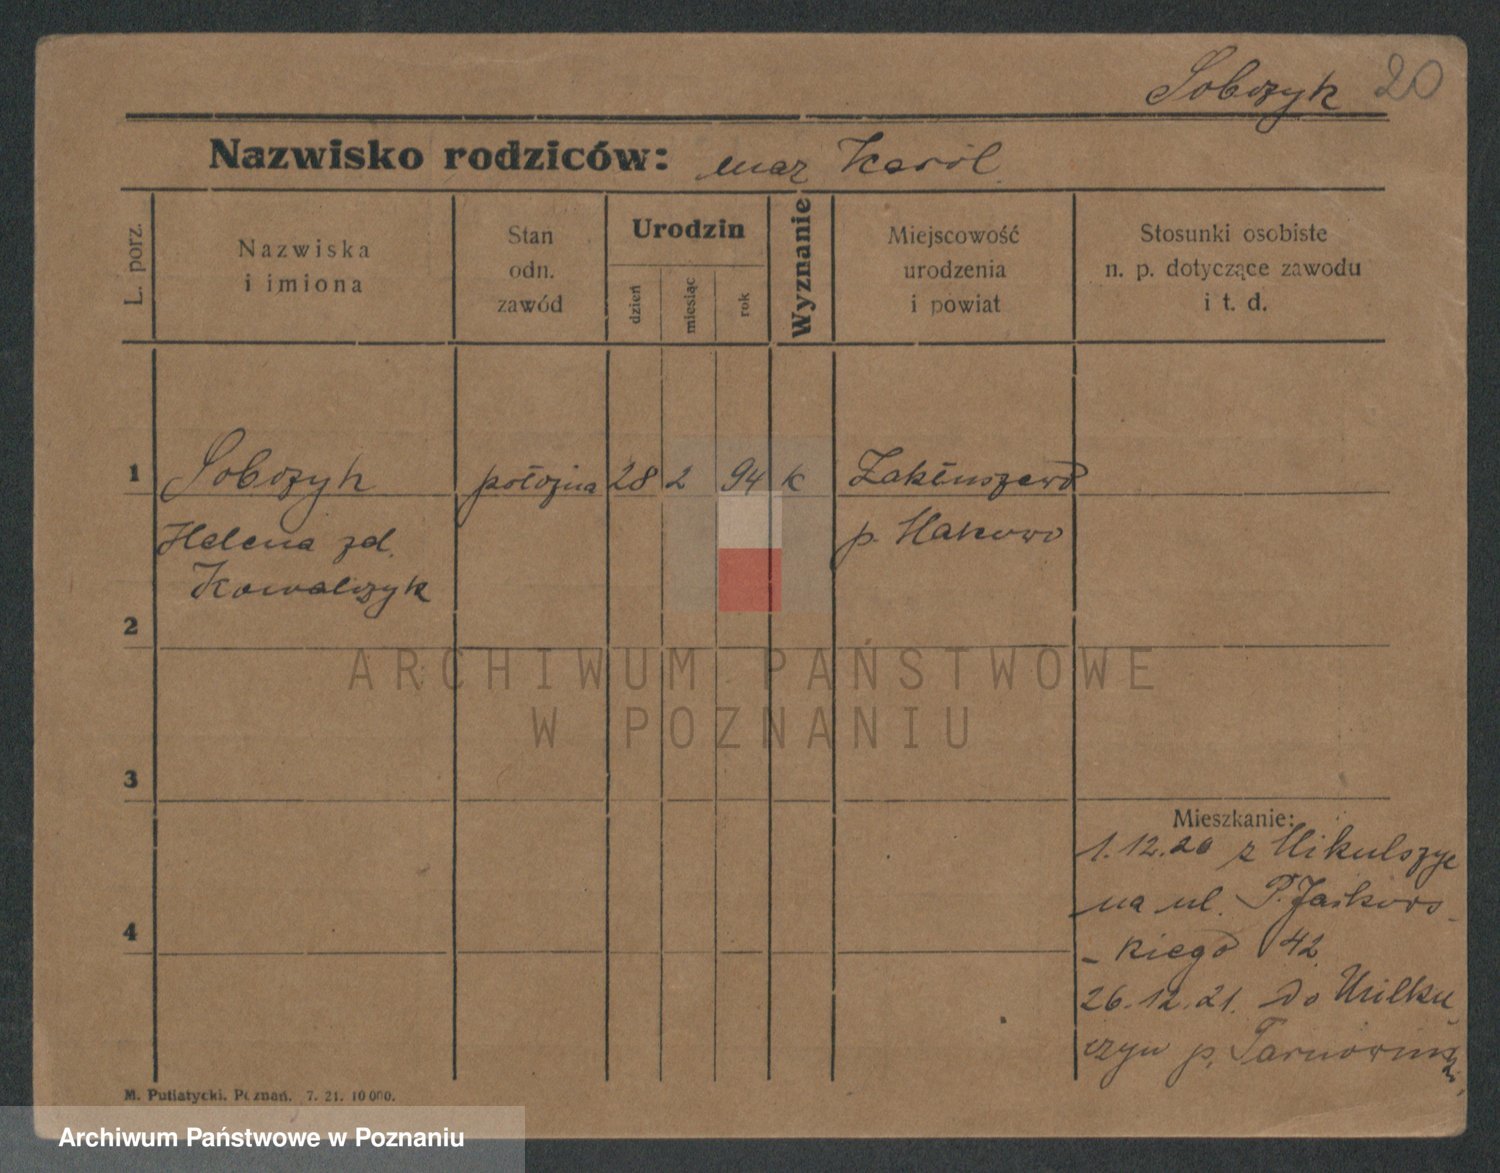 Sobczyk 20
Nazwisko rodziców: mąż Karól
L. porz.
Nazwiska
i imiona
Stan
odn.
zawód
Urodzin
dzień
miesiąc
rok
Wyznanie
Miejscowość
urodzenia
i powiat
Stosunki osobiste
n. p. dotyczące zawodu
i t. d.
1 Sobczyk położna 28 2 94 k
Helena zd. p. Makowo
Kowalczyk
2
ARCHIWUM PAŃSTWOWE
W POZNANIU
3
Mieszkanie:
1.12.20 z
na ul. P. Jaśkows-
4 -kiego 42
26.12.21. do
p.
M. Putiatycki, Poznań. 7. 21. 10 000.
Archiwum Państwowe w Poznaniu